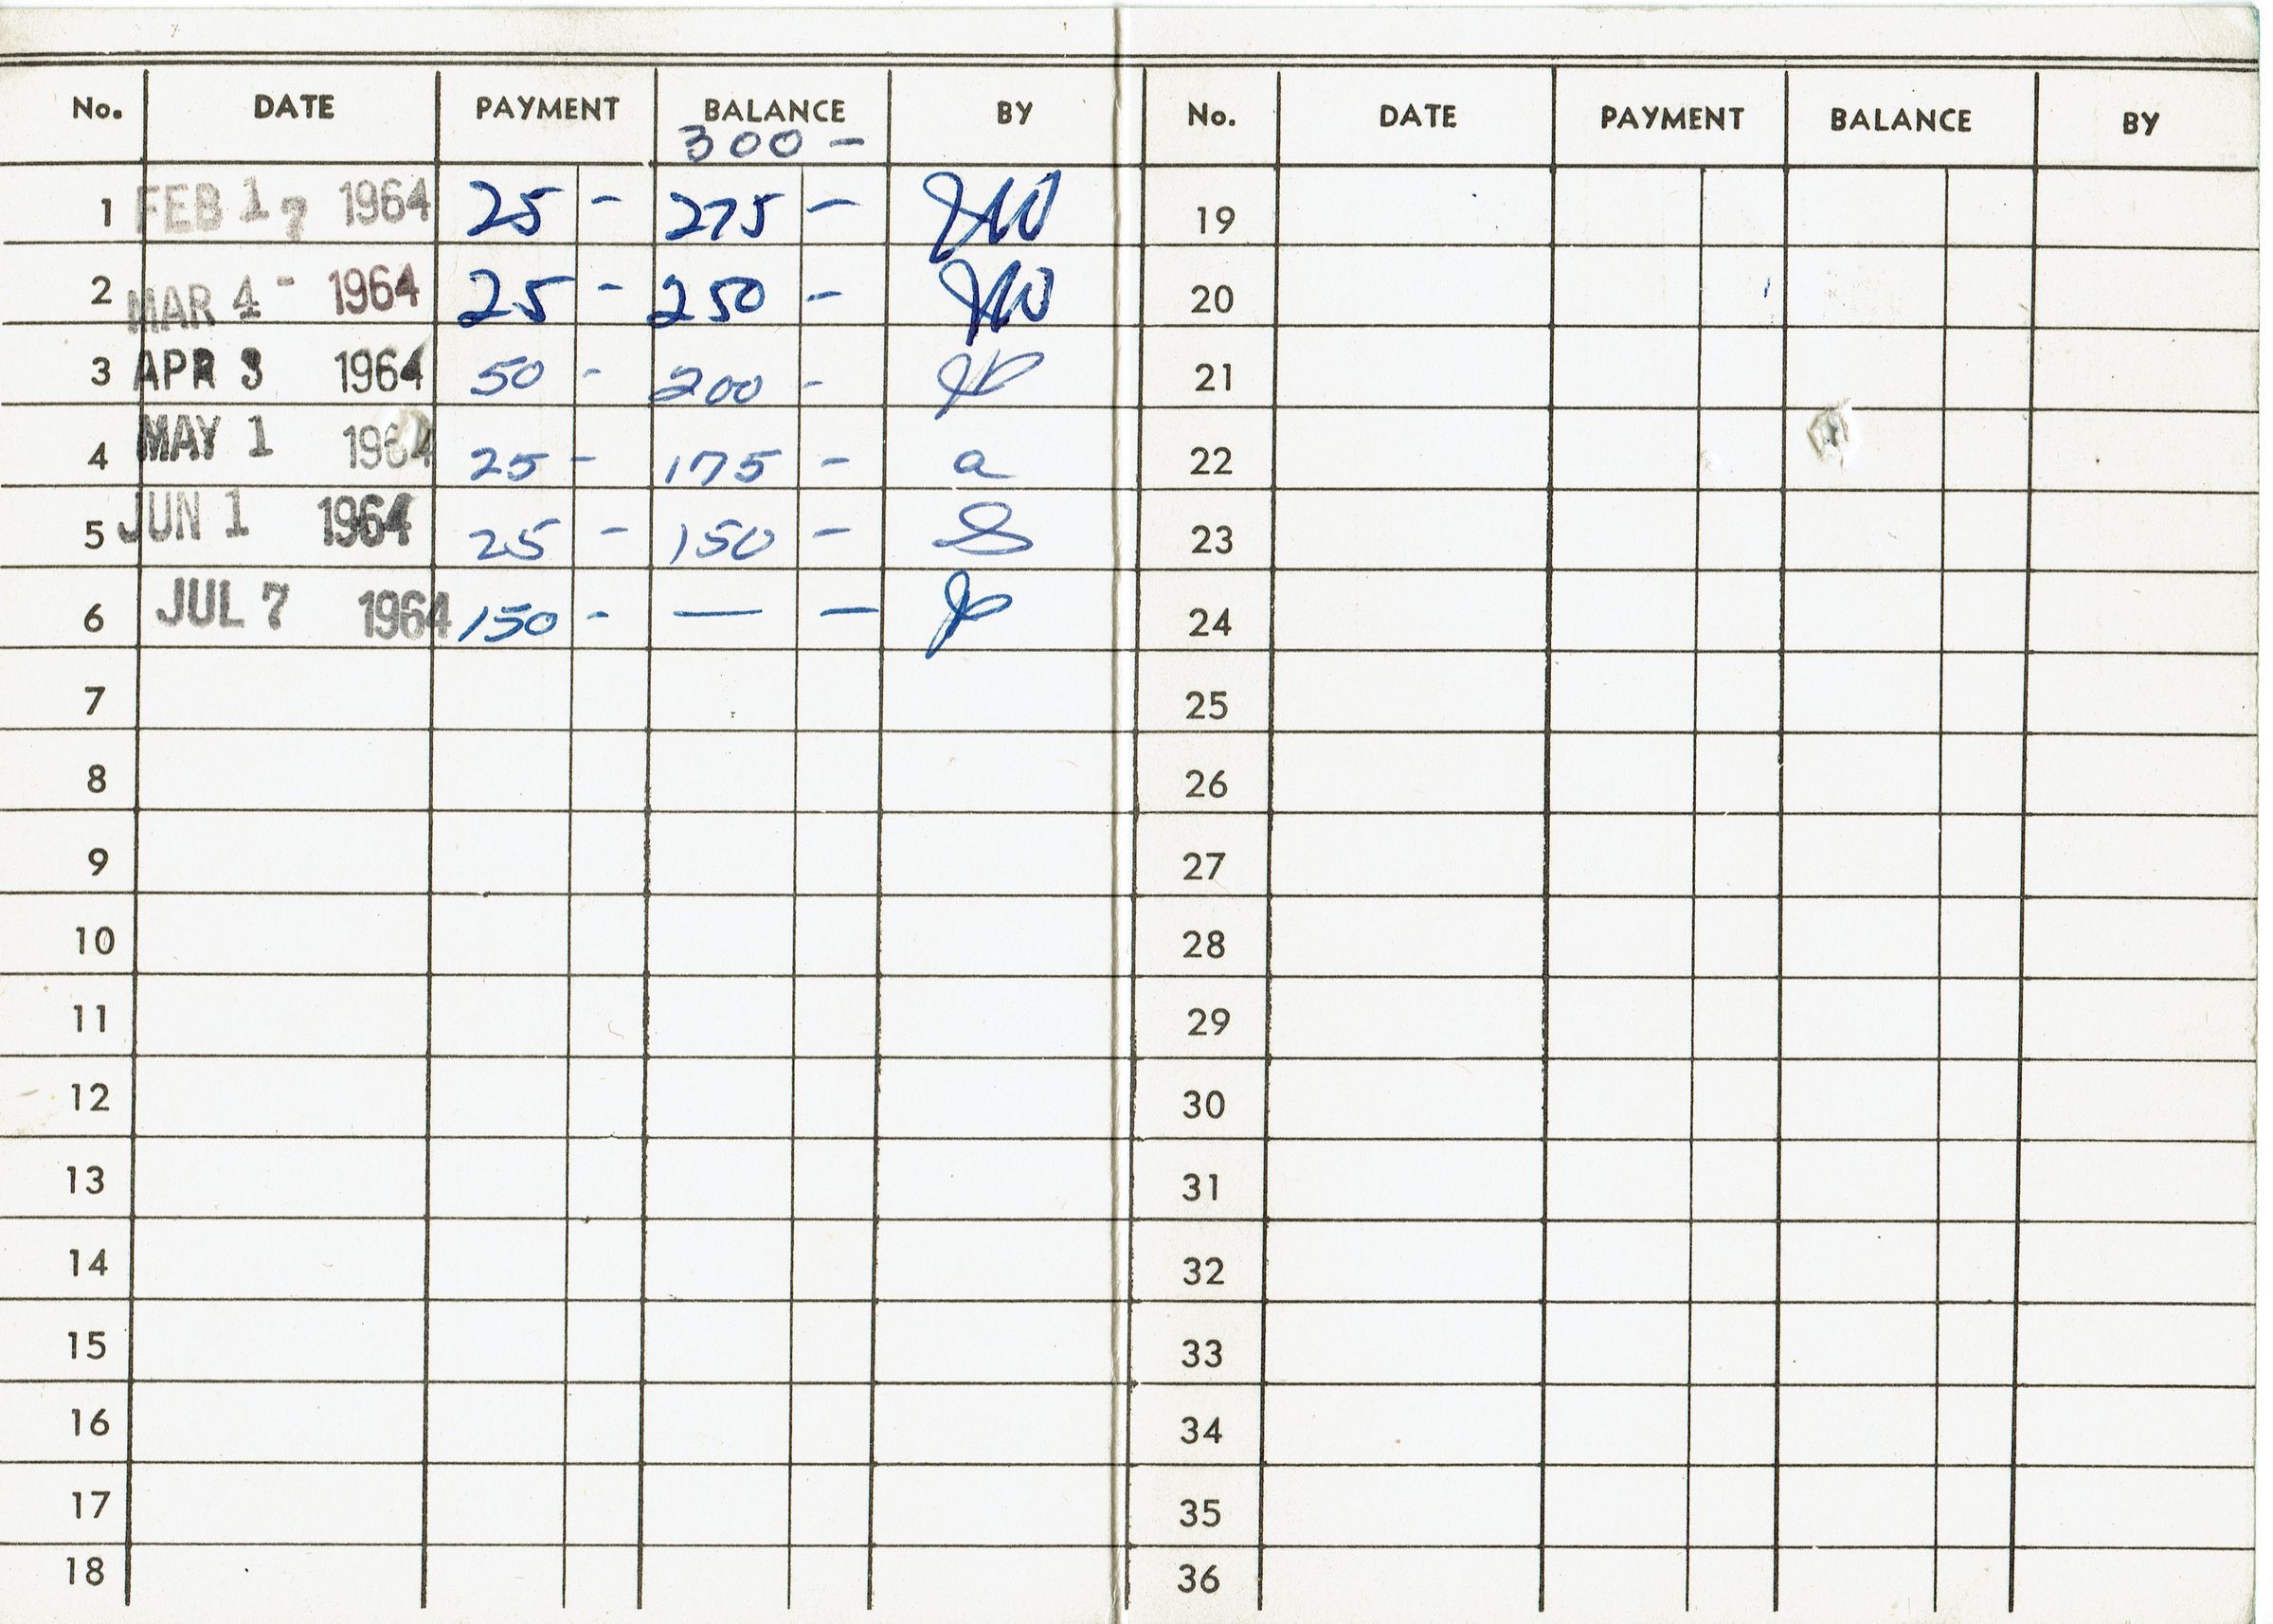 No. DATE PAYMENT BALANCE BY No. DATE PAYMENT BALANCE BY
300 -
1 FEB 17 1964 25 - 275 - 19
2 MAR 4 - 1964 25 - 250 - 20
3 APR 3 1964 50 - 200 - 21
4 MAY 1 1964 25 - 175 - a 22
5 JUN 1 1964 25 - 150 - 23
6 JUL 7 1964 150 - — — 24
7 25
8 26
9 27
10 28
11 29
12 30
13 31
14 32
15 33
16 34
17 35
18 36